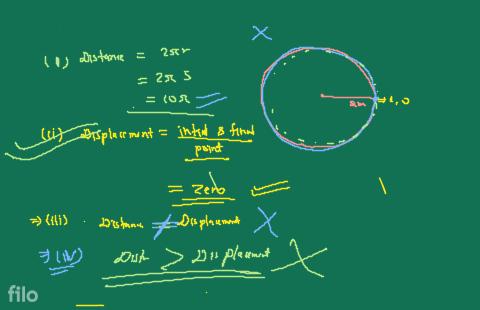 (i) Distance = 2πr
= 2π 5
= 10π
(ii) Displacement = initial & final
point
= zero
⇒ (iii) . Distance ≠ Displacement X
⇒ (iv) Dist > Displacement X
X
5m → 1, 0
filo